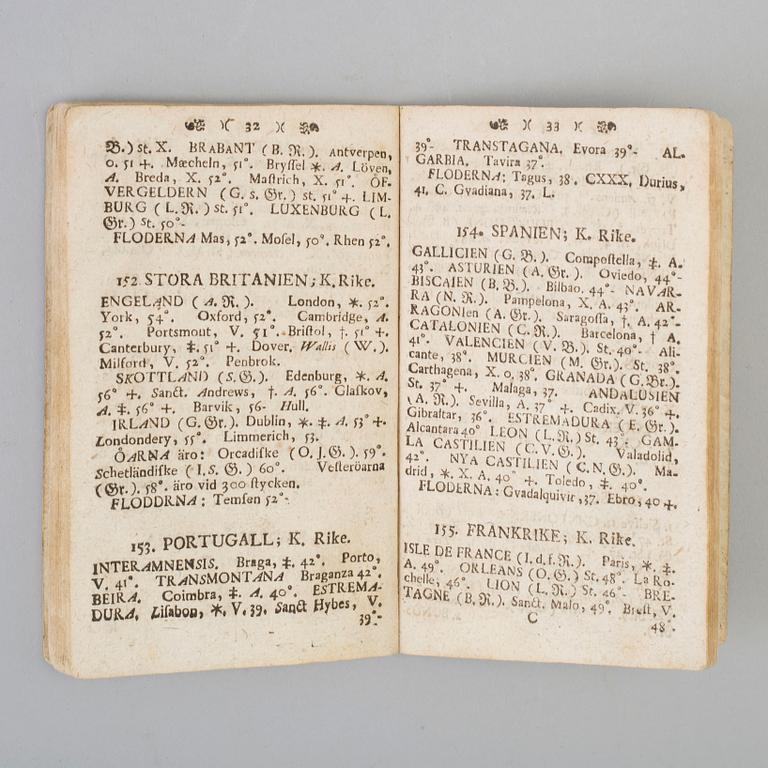 )( 32 )(
B.) st. X. BRABANT (B. R.). Antverpen,
0. 51 +. Mœcheln, 51°. Bryssel *. A. Löven,
A. Breda, X. 52°. Mastrich, X. 51°. ÖF-
VERGELDERN (G. s. Gr.) st. 51° +. LIM-
BURG (L. R.) st. 51°. LUXENBURG (L.
Gr.) st. 50°-
FLODERNA Mas, 52°. Mosel, 50°. Rhen 52°.
152. STORA BRITANIEN; K. Rike.
ENGELAND (A. R.). London, *. 52°.
York, 54°. Oxford, 52°. Cambridge, A.
52°. Portsmout, V. 51°. Bristol, †. 51° +.
Canterbury, ‡. 51° +. Dover. Wallis (W.).
Milford, V. 52°. Penbrok.
SKOTTLAND (S. G.). Edenburg, *. A.
56° +. Sanct. Andrews, †. A. 56°. Glaskov,
A. ‡. 56° +. Barvik, 56- Hull.
IRLAND (G. Gr.). Dublin, *. ‡. A. 53° +.
Londondery, 55°. Limmerich, 53.
ÖARNA äro: Orcadiske (O. J. G.). 59°.
Schetländiske (I. S. G.) 60°. Vesteröarna
(Gr.). 58°. äro vid 300 stycken.
FLODDRNA: Temsen 52°-
153. PORTUGALL; K. Rike.
INTERAMNENSIS. Braga, ‡. 42°. Porto,
V. 41°. TRANSMONTANA Braganza 42°.
BEIRA. Coimbra, ‡. A. 40°. ESTREMA-
DURA. Lisabon, *. V. 39. Sanct Hybes, V.
39°-
)( 33 )(
39°- TRANSTAGANA. Evora 39°- AL-
GARBIA. Tavira 37°.
FLODERNA; Tagus, 38. CXXX. Durius,
41. C. Gvadiana, 37. L.
154. SPANIEN; K. Rike.
GALLICIEN (G. B.). Compostella, ‡. A.
43°. ASTURIEN (A. Gr.). Oviedo, 44°-
BISCAIEN (B. B.). Bilbao. 44°- NAVAR-
RA (N. R.). Pampelona, X. A. 43°. AR-
RAGONIen (A. Gr.). Saragossa, †. A. 42°-
CATALONIEN (C. R.). Barcelona, † A.
41°. VALENCIEN (V. B.). St. 40°- Ali-
cante, 38°. MURCIEN (M. Gr.). St. 38°.
Carthagena, X. 0. 38°. GRANADA (G. Br.).
St. 37° +. Malaga, 37. ANDALUSIEN
(A. R.). Sevilla, A. 37° +. Cadix. V. 36° +.
Gibraltar, 36°. ESTREMADURA (E. Gr.).
Alcantara 40° LEON (L. R.) St. 43°. GAM-
LA CASTILIEN (C. V. G.). Valadolid,
42°. NYA CASTILIEN (C. N. G.). Ma-
drid, *. X. A. 40° +. Toledo, ‡. 40°.
FLODERNA: Gvadalquivir, 37. Ebro, 40 +.
155. FRANKRIKE; K. Rike.
ISLE DE FRANCE (I. d. f. R.). Paris, *. ‡.
A. 49°. ORLEANS (O. G.) St. 48°. La Ro-
chelle, 46°. LION (L. R.) St. 46°- BRE-
TAGNE (B. R.). Sanct. Malo, 49°. Brest, V.
C
48°.